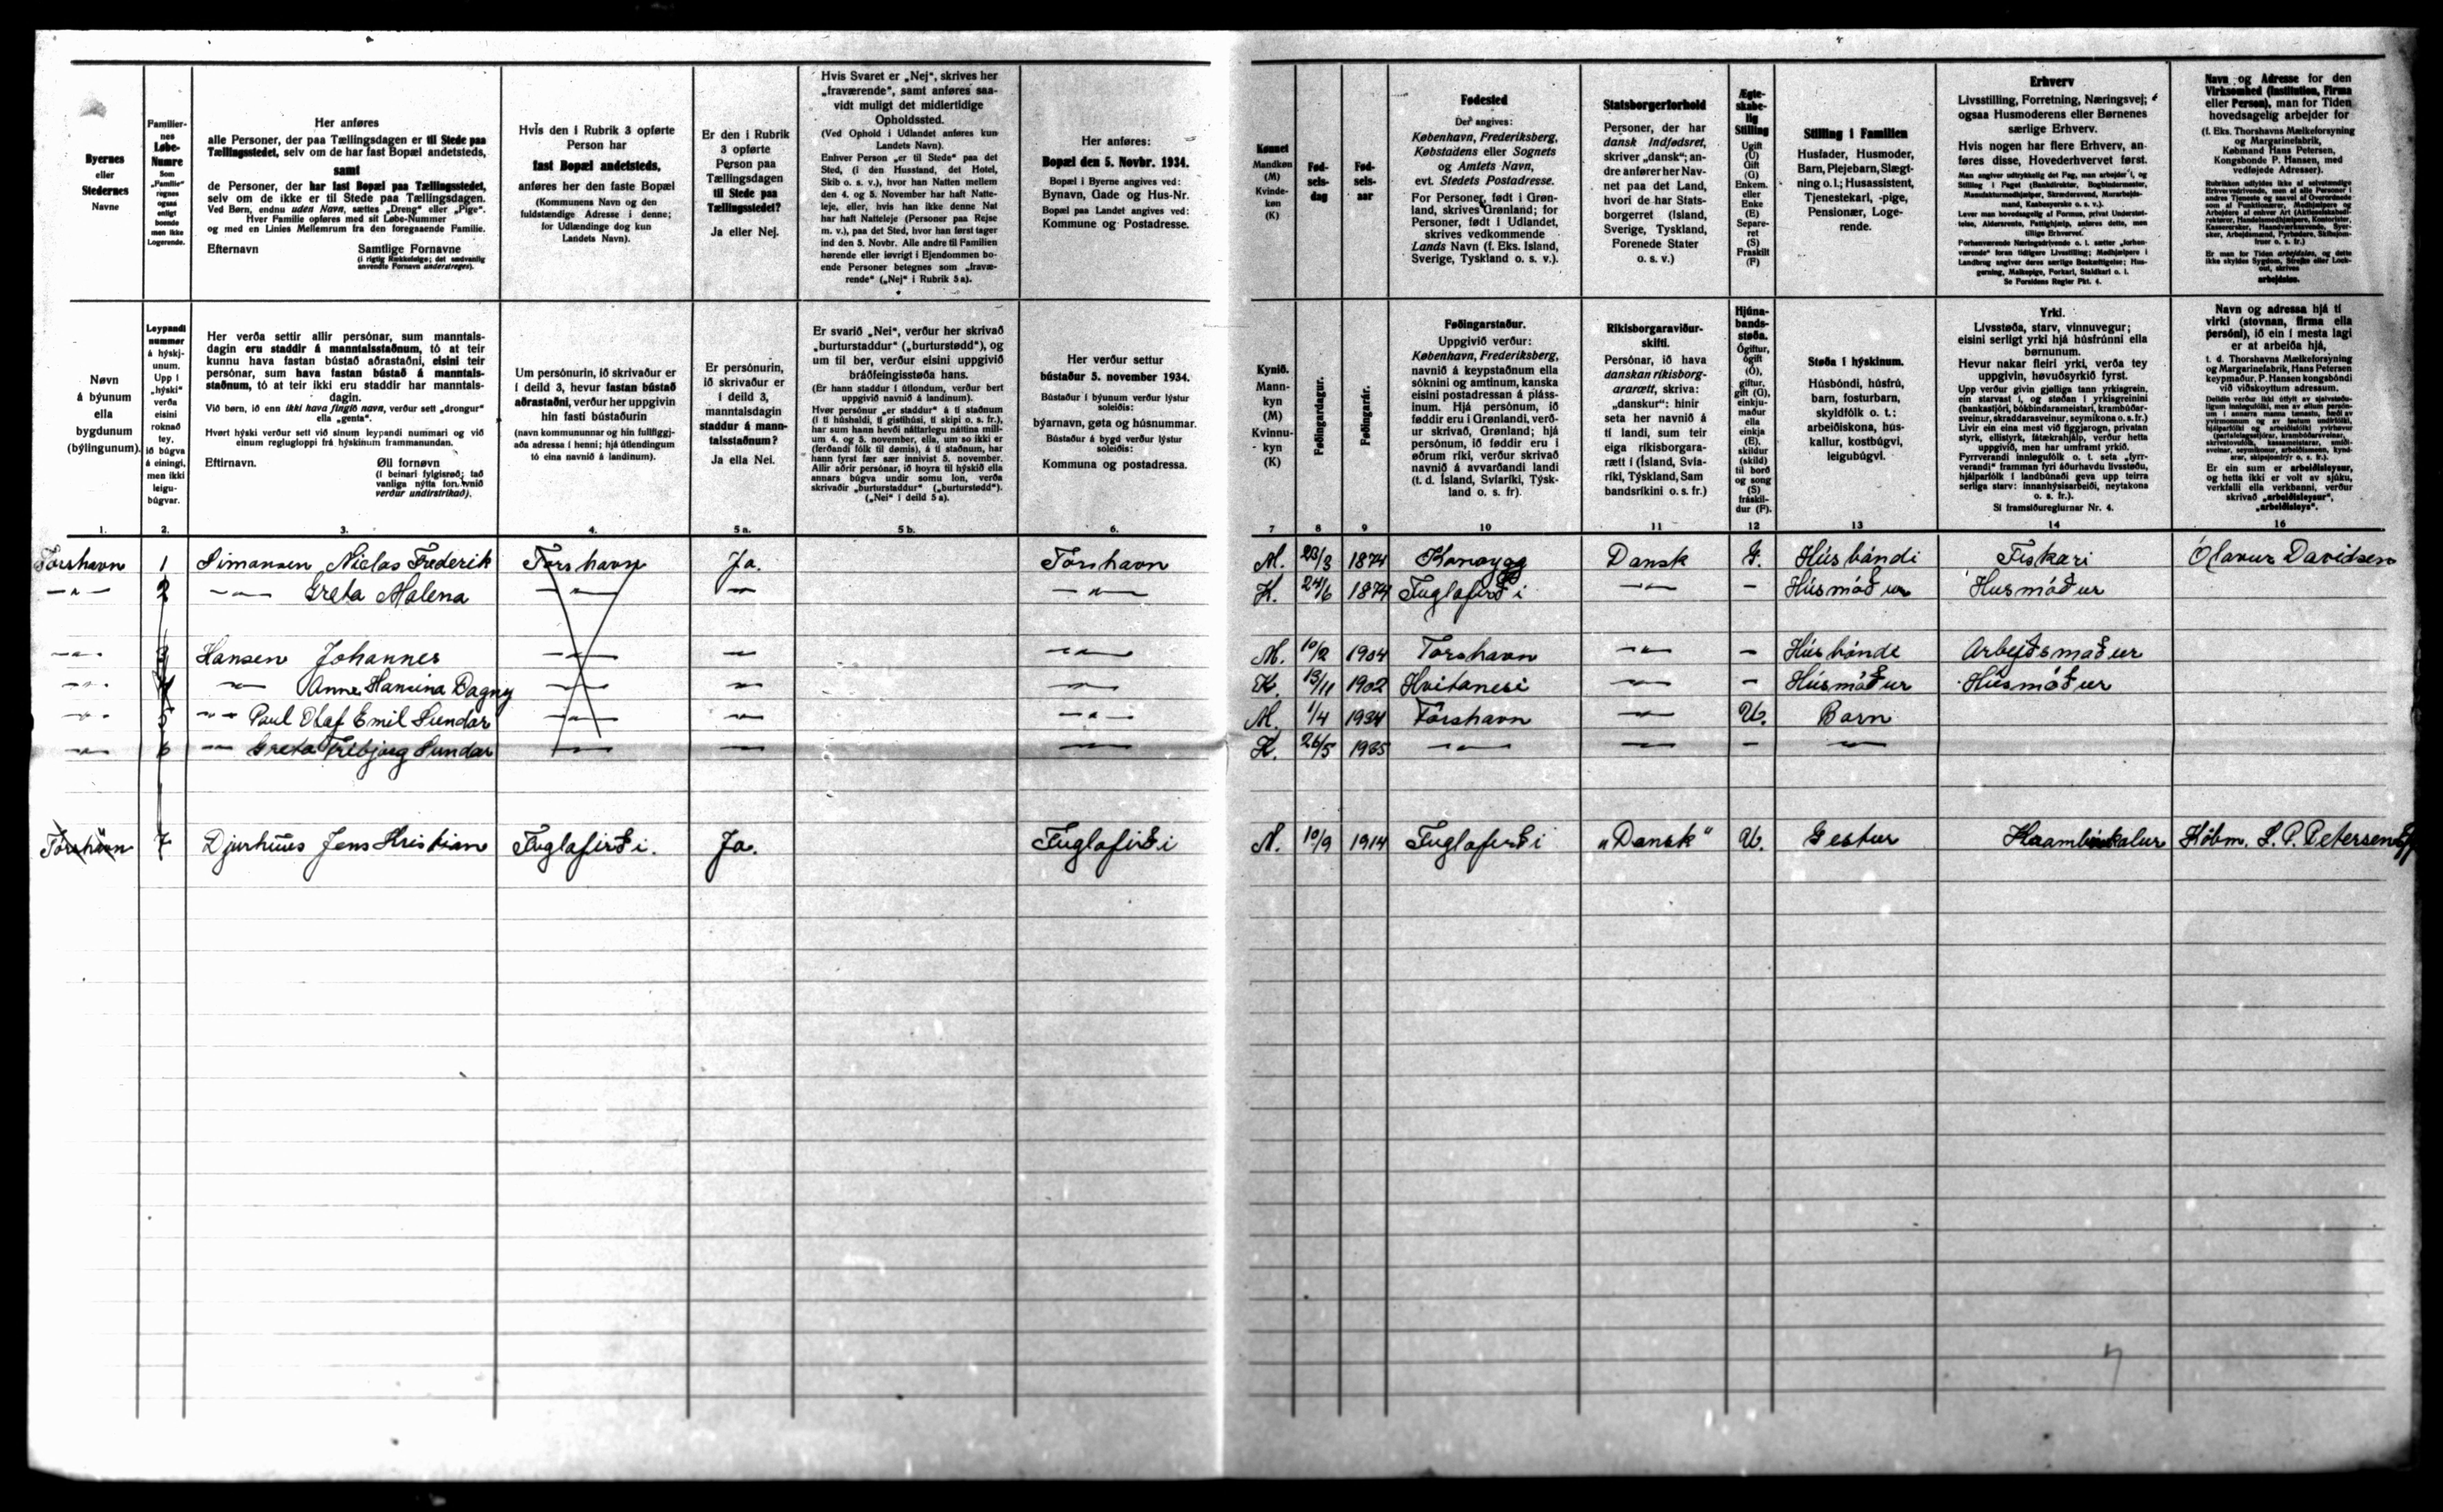 Byernes
eller
Stedernes
Navne
Familier-
nes
Løbe-
Numre
Som
„Familie"
regnes
ogsaa
enligt
boende
men ikke
Logerende.
Her anføres
alle Personer, der paa Tællingsdagen er til Stede paa
Tællingsstedet, selv om de har fast Bopæl andetsteds,
samt
de Personer, der har fast Bopæl paa Tællingsstedet,
selv om de ikke er til Stede paa Tællingsdagen.
Ved Børn, endnu uden Navn, sættes „Dreng" eller „Pige".
Hver Familie opføres med sit Løbe-Nummer
og med en Linies Mellemrum fra den foregaaende Familie.
Efternavn Samtlige Fornavne
(i rigtig Rækkefølge; det sædvanlig
anvendte Fornavn understreges).
Hvis den i Rubrik 3 opførte
Person har
fast Bopæl andetsteds,
anføres her den faste Bopæl
(Kommunens Navn og den
fuldstændige Adresse i denne;
for Udlændinge dog kun
Landets Navn).
Er den i Rubrik
3 opførte
Person paa
Tællingsdagen
til Stede paa
Tællingsstedet?
Ja eller Nej.
Hvis Svaret er „Nej", skrives her
„fraværende", samt anføres saa-
vidt muligt det midlertidige
Opholdssted.
(Ved Ophold i Udlandet anføres kun
Landets Navn).
Enhver Person „er til Stede" paa det
Sted, (i den Husstand, det Hotel,
Skib o. s. v.), hvor han Natten mellem
den 4. og 5. November har haft Natte-
leje, eller, hvis han ikke denne Nat
har haft Natteleje (Personer paa Rejse
m. v.), paa det Sted, hvor han først tager
ind den 5. Novbr. Alle andre til Familien
hørende eller iøvrigt i Ejendommen bo-
ende Personer betegnes som „fravæ-
rende" („Nej" i Rubrik 5 a).
Her anføres:
Bopæl den 5. Novbr. 1934.
Bopæl i Byerne angives ved:
Bynavn, Gade og Hus-Nr.
Bopæl paa Landet angives ved:
Kommune og Postadresse.
Kønnet
Mandkøn
(M)
Kvinde-
køn
(K)
Fød-
sels-
dag
Fød-
sels-
aar
Fødested
Der angives:
København, Frederiksberg,
Købstadens eller Sognets
og Amtets Navn,
evt. Stedets Postadresse.
For Personer, født i Grøn-
land, skrives Grønland; for
Personer, født i Udlandet,
skrives vedkommende
Lands Navn (f. Eks. Island,
Sverige, Tyskland o. s. v.).
Statsborgerforhold
Personer, der har
dansk Indfødsret,
skriver „dansk"; an-
dre anfører her Nav-
net paa det Land,
hvori de har Stats-
borgerret (Island,
Sverige, Tyskland,
Forenede Stater
o. s. v.)
Ægte-
skabe-
lig
Stilling
Ugift
(U)
Gift
(G)
Enkem.
eller
Enke
(E)
Separe-
ret
(S)
Fraskilt
(F)
Stilling i Familien
Husfader, Husmoder,
Barn, Plejebarn, Slægt-
ning o. l.; Husassistent,
Tjenestekarl, -pige,
Pensionær, Loge-
rende.
Erhverv
Livsstilling, Forretning, Næringsvej;
ogsaa Husmoderens eller Børnenes
særlige Erhverv.
Hvis nogen har flere Erhverv, an-
føres disse, Hovederhvervet først.
Se Forsidens Regler Pkt. 4.
Navn og Adresse for den
Virksomhed (Institution, Firma
eller Person), man for Tiden
hovedsagelig arbejder for
(f. Eks. Thorshavns Mælkeforsyning
og Margarinefabrik,
Købmand Hans Petersen,
Kongsbonde P. Hansen, med
vedføjede Adresser).
arbejdsløs.
Nøvn
á býunum
ella
bygdunum
(býlingunum).
Leypandi
nummer
á hýskj-
unum.
Upp í
„hýski"
verða
eisini
roknað
tey,
ið búgva
á eini­ngi,
men ikki
leigu-
búgvar.
Her verða settir allir persónar, sum manntals-
dagin eru staddir á manntalsstaðnum, tó at teir
kunnu hava fastan bústað aðrastaðni, eisini teir
persónar, sum hava fastan bústað á manntals-
staðnum, tó at teir ikki eru staddir har manntals-
dagin.
Við børn, ið enn ikki hava fingið navn, verður sett „drongur"
ella „genta".
Hvørt hýski verður sett við sínum leypandi nummari og við
einum reglugloppi frá hýskinum frammanundan.
Eftirnavn. Øll fornøvn
(í beinari fylgisrøð; tað
vanliga nýtta fornavnið
verður undirstrikað).
Um persónurin, ið skrivaður er
í deild 3, hevur fastan bústað
aðrastaðni, verður her uppgivin
hin fasti bústaðurin
(navn kommununnar og hin fullfiggj-
aða adressa í henni; hjá útlendingum
tó eina navnið á landinum).
Er persónurin,
ið skrivaður er
í deild 3,
manntalsdagin
staddur á mann-
talsstaðnum?
Ja ella Nei.
Er svarið „Nei", verður her skrivað
„burturstaddur" („burturstødd"), og
um til ber, verður eisini uppgivið
bráðfeingisstøða hans.
(Er hann staddur í útlondum, verður bert
uppgivið navnið á landinum).
Hvør persónur „er staddur" á tí staðnum
(í tí húshaldi, tí gistihúsi, tí skipi o. s. fr.),
har sum hann hevði náttarlegu náttina mill-
um 4. og 5. november, ella, um so ikki er
(ferðandi fólk til dømis), á tí staðnum, har
hann fyrst fær sær innivist 5. november.
Allir aðrir persónar, ið hoyra til hýskið ella
annars búgva undir somu lon, verða
skrivaðir „burturstaddur" („burturstødd").
(„Nei" í deild 5 a).
Her verður settur
bústaður 5. november 1934.
Bústaður í býunum verður lýstur
soleiðis:
býarnavn, gøta og húsnummar.
Bústaður á bygd verður lýstur
soleiðis:
Kommuna og postadressa.
Kynið.
Mann-
kyn
(M)
Kvinnu-
kyn
(K)
Føðingardagur.
Føðingarár.
Føðingarstaður.
Uppgivið verður:
København, Frederiksberg,
navnið á keypstaðnum ella
sóknini og amtinum, kanska
eisini postadressan á pláss-
inum. Hjá persónum, ið
føddir eru í Grønlandi, verð-
ur skrivað, Grønland; hjá
persónum, ið føddir eru í
øðrum ríki, verður skrivað
navnið á avvarðandi landi
(t. d. Ísland, Svíaríki, Týsk-
land o. s. fr).
Ríkisborgaraviður-
skifti.
Persónar, ið hava
danskan ríkisborg-
ararætt, skriva:
„danskur": hinir
seta her navnið á
tí landi, sum teir
eiga ríkisborgara-
rætt í (Ísland, Svía-
ríki, Týskland, Sam
bandsríkini o. s. fr.)
Hjúna-
bands-
støða.
Ógiftur,
ógift
(Ó),
giftur,
gift (G),
einkju-
maður
ella
einkja
(E),
skildur
(skild)
til borð
og song
(S)
fráskil-
dur (F).
Støða í hýskinum.
Húsbóndi, húsfrú,
barn, fosturbarn,
skyldfólk o. t.;
arbeiðiskona, hús-
kallur, kostbúgvi,
leigubúgvi.
Yrki.
Livsstøða, starv, vinnuvegur;
eisini serligt yrki hjá húsfrúnni ella
børnunum.
Hevur nakar fleiri yrki, verða tey
uppgivin, høvuðsyrkið fyrst.
Sí framsíðureglurnar Nr. 4.
Navn og adressa hjá tí
virki (stovnan, firma ella
persóni), ið ein í mesta lagi
er at arbeiða hjá,
t. d. Thorshavns Mælkeforsyning
og Margarinefabrik, Hans Petersen
keypmaður, P. Hansen kongsbóndi
við viðskoyttum adressum.
Er ein sum er arbeiðsleysur,
og hetta ikki er volt av sjúku,
verkfalli ella verkbanni, verður
skrivað „arbeiðisleysur",
„arbeiðisleys".
1. 2. 3. 4. 5 a. 5 b. 6. 7 8 9 10 11 12 13 14 16
Torshavn 1 Simonsen Niclas Frederik Torshavn Ja. Torshavn M. 23/3 1874 Dansk G. Húsbóndi Fiskari Ólavur Davidsen
—"— 2 —"— Greta Malena —"— — —"— K. 24/6 1874 Fuglafirði —"— — Húsmóður Húsmóður
—"— 3 Hansen Johannes —"— — —"— M. 10/2 1904 Torshavn —"— — Húsbónde Arbejðsmaður
—"— 4 —"— Anne Hansina Dagny —"— — — K. 13/11 1902 Hvitanesi — — Húsmóður Húsmóður
—"— 5 —"— Paul Olaf Emil Sundar —"— — —"— M. 1/4 1934 Torshavn — U. Barn
—"— 6 —"— Greta Sundar —"— — — K. 26/5 1935 —"— — — —
Torshavn 7 Djurhuus Jens Kristian Fuglafirði. Ja. Fuglafirði M. 10/9 1914 Fuglafirði „Dansk" U. Gestur Købm. S. P. Petersen